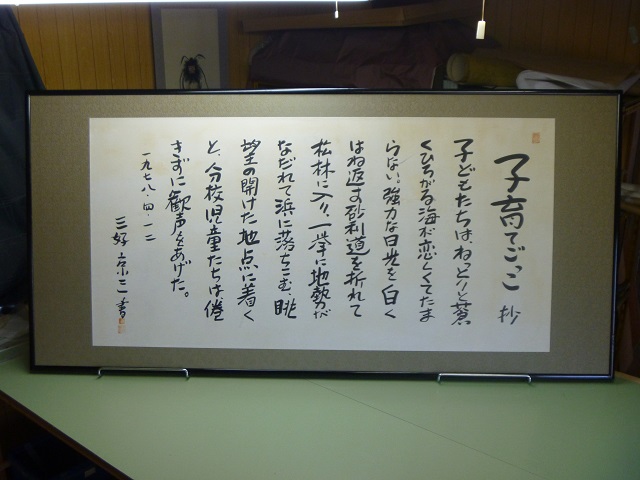 子育てごっこ 抄
子どもたちは、ねっとりと蒼
くひろがる海が恋しくてたま
らない。強力な日光を白く
はね返す砂利道を折れて
松林に入り、一挙に地勢が
なだれて浜に落ちこむ眺
望の開けた地点に着く
と、分校児童たちは倦
きずに歓声をあげた。
一九七八・四・一二
三好京三書